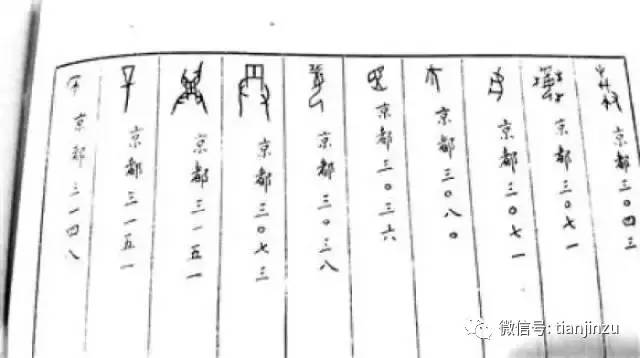 京都三〇四三
京都三〇七一
京都三〇七一
京都三〇八〇
京都三〇三六
京都三〇三八
京都三〇七三
京都三一五一
京都三一五一
京都三一四八
微信号: tianjinzu